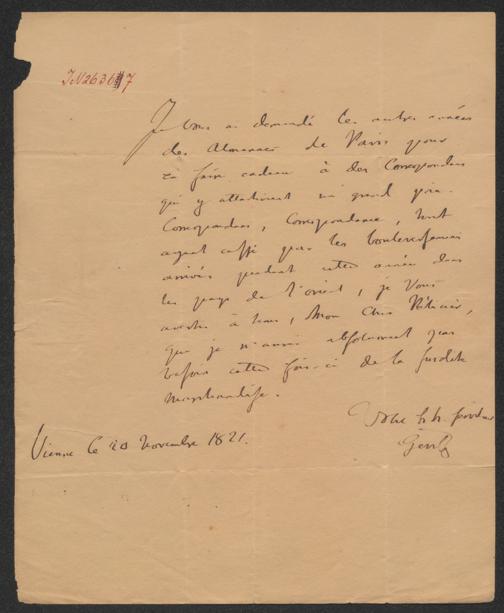 IN 263617
Je vous ai demandé les autres années
des Almanacs de Paris pour
en faire cadeau à des Correspondans
qui y attachoient un grand prix.
Correspondans, Correspondance, tout
ayant cessé par les bouleversemens
arrivés pendant cette année dans
les pays de l'orient, je Vous
avertis à tems, Mon Cher
que je n'aurai absolument pas
besoin cette fois-ci de la susdite
marchandise.
Votre tr. h. serviteur
Gentz
Vienne le 20 Novembre 1821.